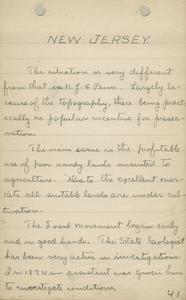 NEW JERSEY.
The situation is very different
from that in N.Y. & Penn. Largely be-
cause of the topography, there being pract-
ically no popular incentive for preser-
vation.
The main issue is the profitable
use of poor sandy lands unsuited to
agriculture. Due to the excellent mar-
kets all suitable lands are under cul-
tivation.
The Forest movement began early
and in good hands. The State Geologist
has been very active in investigations.
In 1894 an assistant was given him
to investigate conditions.
41